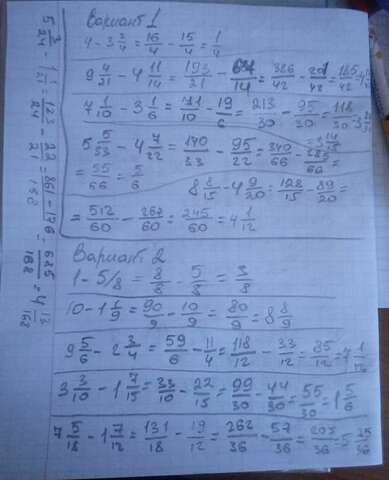 Вариант 1
4 - 3 3/4 = 16/4 - 15/4 = 1/4
9 4/21 - 4 11/14 = 193/21 - 67/14 = 386/42 - 201/42 = 185/42
7 1/10 - 3 1/6 = 71/10 - 19/6 = 213/30 - 95/30 = 118/30 =
5 5/33 - 4 7/22 = 170/33 - 95/22 = 340/66 - 285/66 =
= 55/66 = 5/6
8 8/15 - 4 9/20 = 128/15 - 89/20 =
= 512/60 - 267/60 = 245/60 = 4 1/12
Вариант 2
1 - 5/8 = 8/8 - 5/8 = 3/8
10 - 1 1/9 = 90/9 - 10/9 = 80/9 = 8 8/9
9 5/6 - 2 3/4 = 59/6 - 11/4 = 118/12 - 33/12 = 85/12 = 7 1/12
3 3/10 - 1 7/15 = 33/10 - 22/15 = 99/30 - 44/30 = 55/30 = 1 5/6
7 5/18 - 1 7/12 = 131/18 - 19/12 = 262/36 - 57/36 = 205/36 = 5 25/36